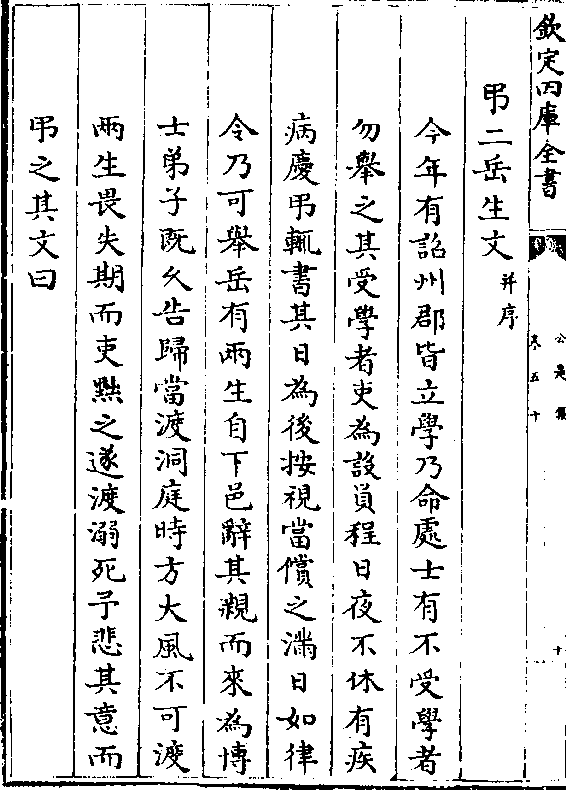 欽定四庫全書
公是集
卷五十
十
弔二岳生文并序
今年有詔州郡皆立學乃命處士有不受學者
勿舉之其受學者吏為設員程日夜不休有疾
病慶弔輒書其日為後按視當償之滿日如律
令乃可舉岳有兩生自下邑辭其親而來為博
士弟子既久告歸當渡洞庭時方大風不可渡
兩生畏失期而吏黠之遂渡溺死予悲其意而
弔之其文曰